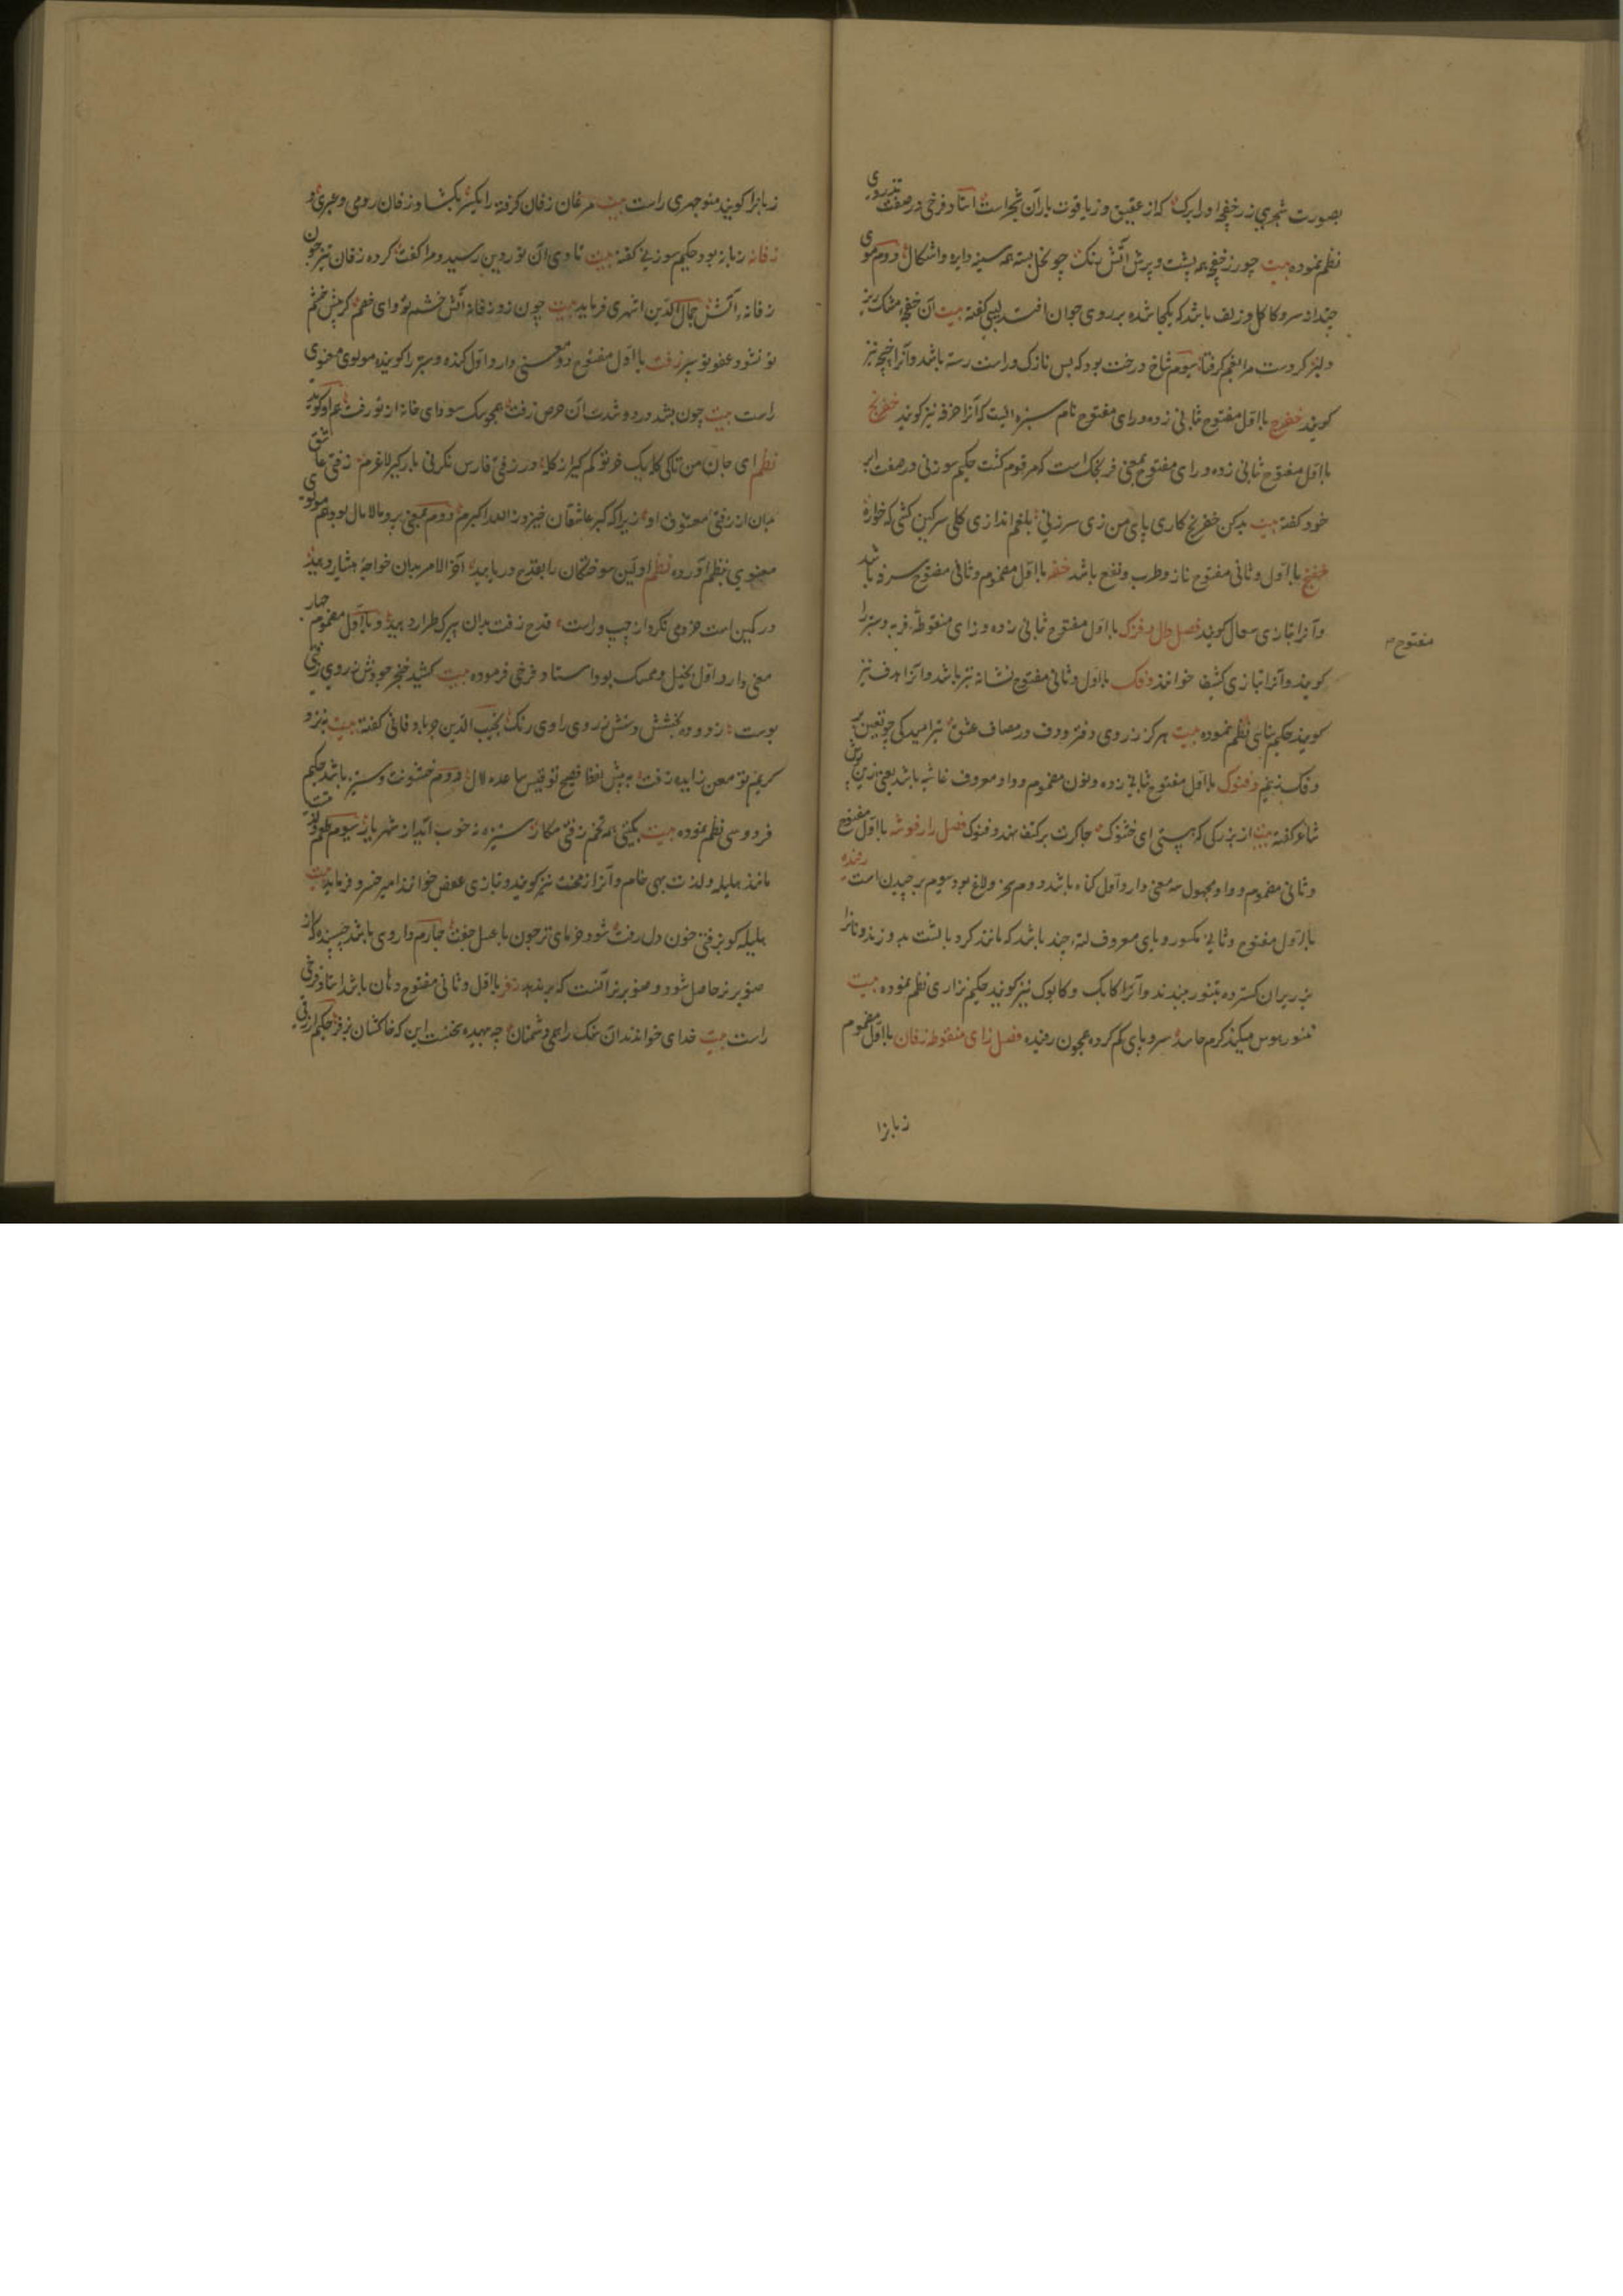 بصورت شجری زر خفچه اورا برک که از عقیق و زیاقوت باران شجر است استاد فرخی در صفت تذروی
نظم نموده بیت چو زر خفچه همه پشت و برش آتش رنک چو نخل بسته همه سینه دایره و اشکال دوم موی
چند از سر و کاکل و زلف باشد که یکجا شده بر روی جوان افتد لبیبی کفته بیت آن خفچه مشک ریز
دلبر کردست مرا بغم کرفتار سیوم شاخ درخت بود که بس نازک و راست رسته باشد و آنرا خچه نیز
کویند خفرج با اول مفتوح ثانی زده و رای مفتوح نام سبزه ایست که آنرا خرفه نیز کویند خفرنج
با اول مفتوح ثانی زده و رای مفتوح بمعنی فرنجک است که مرقوم کشت حکیم سوزنی در صفت ایر
خود کفته بیت بدکن خفرنج کاری پای من زی سر زنی بلغم اندازی کلی سرکین کشی که خواره
خفنج با اول و ثانی مفتوح ناز و طرب و نفع باشد خفه با اول مضموم و ثانی مفتوح سرفه باشد
و آنرا بتازی سعال کویند فصل دال دفزک با اول مفتوح ثانی زده و زای منقوطه فربه و ستبر را
کویند و آنرا بتازی کشف خوانند دفک با اول و ثانی مفتوح نشانه تیر باشد و آنرا هدف نیز
کویند حکیم سنایی نظم نموده بیت هرکز ز روی دفتر و دف در مصاف عشق تیر امید کی چو تعین بر
دفک زنیم دفنوک با اول مفتوح ثانی زده و نون مضموم و واو معروف غاشیه باشد یعنی زین پوش
شاعر کفته بیت از بزرکی که هستی ای خشنوک چاکرت بر کتف نهد دفنوک فصل را رفوشه با اول مفتوح
و ثانی مضموم و واو مجهول سه معنی دارد اول کناه باشد دوم سخره و لاغ بود سیوم برچیدن است رفیده
با اول مفتوح و ثانی مکسور و یای معروف لته چند باشد که مانند کرد بالشت بدوزند و نانرا
بر زبر آن کسترده بتنور چندند و آنرا کابک و کابوک نیز کویند حکیم نزاری نظم نموده بیت
تنور هوس میکند کرم حاسد سر و پای کم کرده همچون رفیده فصل زای منقوطه زفان با اول مضموم
مفتوح
زبانرا
زبانرا کویند منوچهری راست بیت مرغان زفان کرفته را یکسر بکشاد زفان رومی و عبری
زفانه زبانه بود حکیم سوزنی کفته بیت تا دی آن نور دین رسید و مرا کفت کرده زفان تیز چون
زفانه آتش جمال الدین اشهری فرماید بیت چون زد زفانه آتش خشم تو وای فهم کر پیش خشم
تو نشود عفو تو سپر زفت با اول مفتوح دو معنی دارد اول کنده و ستبر را کویند مولوی معنوی
راست بیت چون بشد در دو شدت آن حرص زفت همچو سک سودای خانه از تو رفت هم او کوید
نظم ای جان من تا کی کله یک خر تو کم کیر از کله در زفتی فارس نکر نی بارکیر لاغرم زفتی عاشق
جان از زفتی معشوق او زیرا که کبر عاشقان خیزد ز الله اکبرم دوم بمعنی پر و مالامال بود هم مولوی
معنوی بنظم آورده نظم اولین سوختکان را بقدح دریابید آخر الامر بدان خواجه هشیار دهید
در کمین است خرد می نکرد از چپ و راست قدح زفت بدان پیرک طرار دهید و با اول مضموم چهار
معنی دارد اول بخیل و ممسک بود استاد فرخی فرموده بیت کشید خنجر جودش ز روی زفتی
پوست زدوده بخشش دستش ز روی رادی رنک نجیب الدین جرباد قانی کفته بیت به نزد
کریم تو معن زایده زفت به پیش لفظ فصیح تو قیس ساعده لال دوم خشونت و ستیزه باشد حکیم
فردوسی نظم نموده بیت بکیتی به تخم زفتی مکار ستیزه نه خوب آید از شهریار سیوم عفوصت
مانند هلیله و لذت بهی خام و آنرا زمخت نیز کویند و بتازی عفص خوانند امیر خسرو فرماید بیت
هلیله کو بزفتی خون دل رفت شود خرمای تر چون با عسل جفت چهارم داروی باشد چسپنده که از
صنوبر نر حاصل شود و صنوبر نر آنست که بر ندهد زفر با اول و ثانی مفتوح دهان باشد استاد فرخی
راست بیت خدای خواند آن سنک را همی شمنان چه بیهده سخنست این که خاکشان بزفر حکیم ازرقی